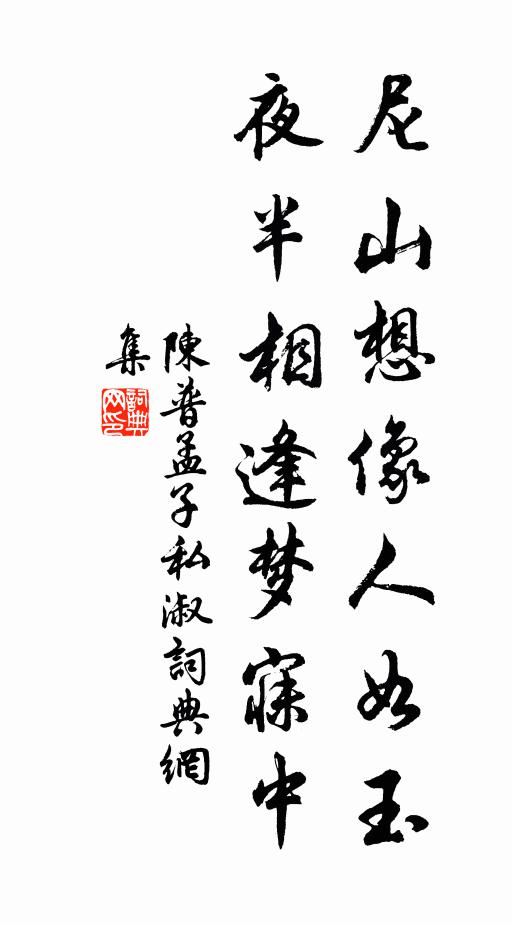 尼山想像人如玉
夜半相逢梦寐中
陳普孟子私淑詞典網
集
詞典
网印